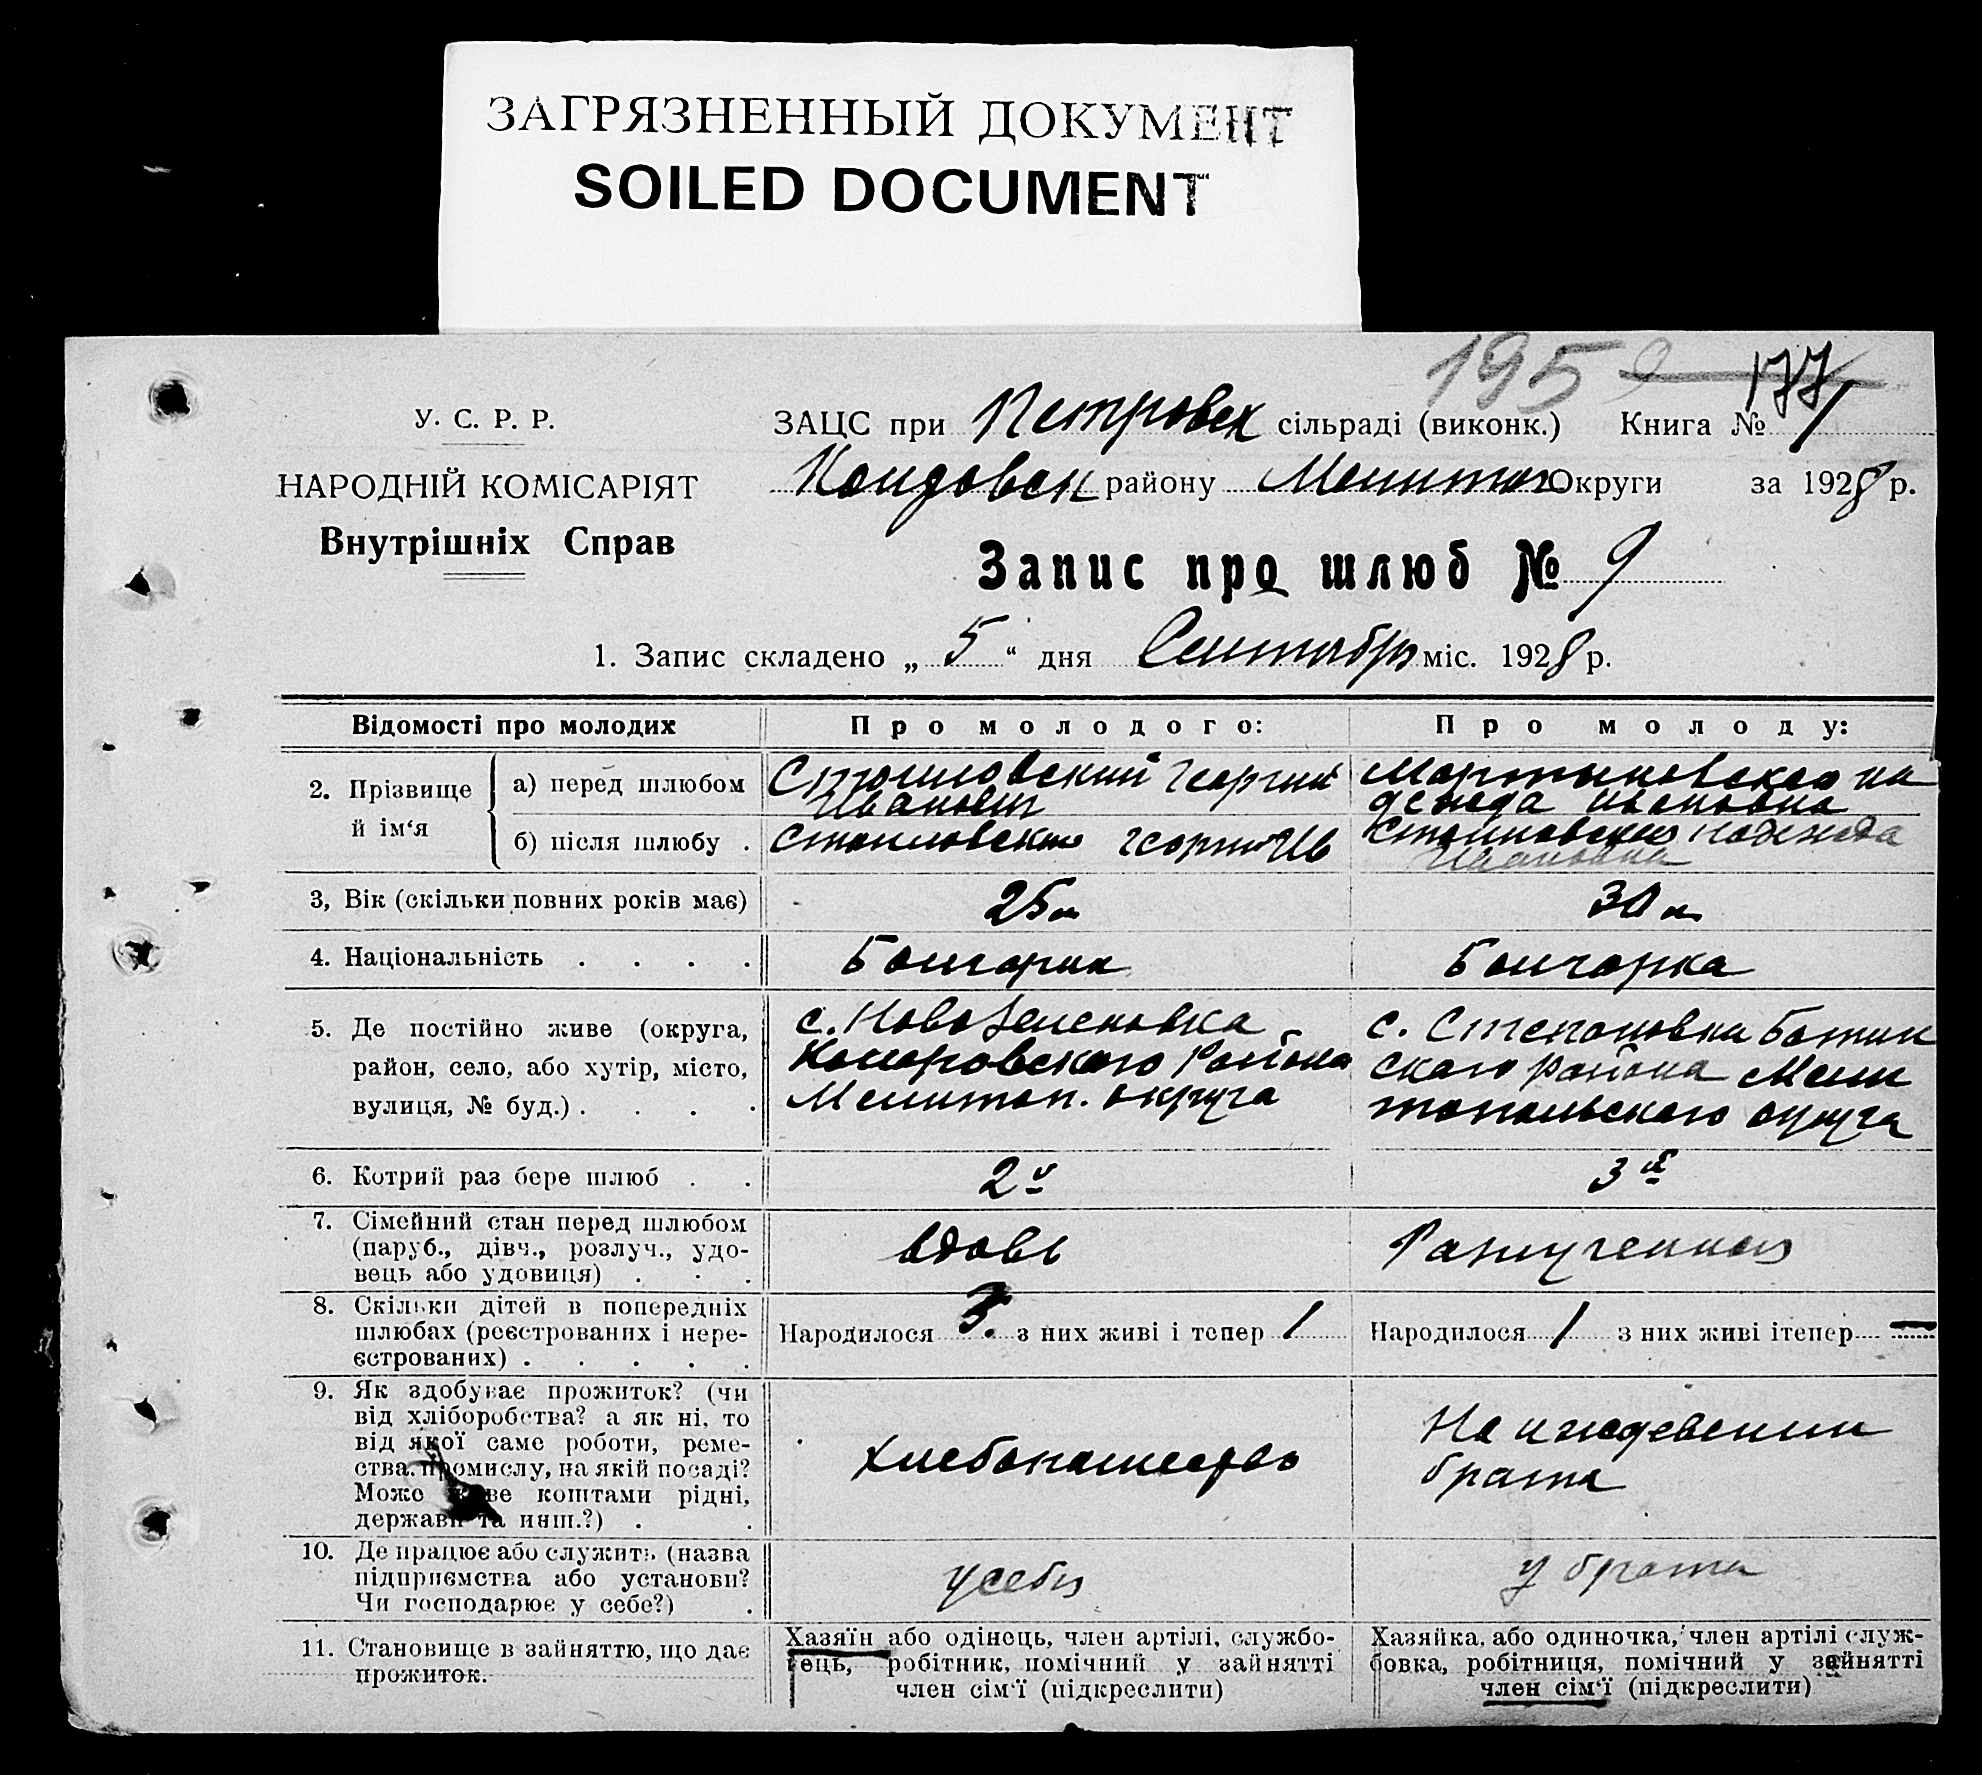 ЗАГРЯЗНЕННЫЙ ДОКУМЕНТ
SOILED DOCUMENT
195 177
У. С. Р. Р.
НАРОДНІЙ КОМІСАРІЯТ
Внутрішніх Справ
ЗАЦС при Петровск сільраді (виконк.) Книга № 1
району Мелитоп Округи за 1928 р.
Запис про шлюб № 9
1. Запис складено „ 5 “ дня Сентябрь міс. 1928 р.
Відомості про молодих Про молодого: Про молоду:
2. Прізвище й ім‘я
а) перед шлюбом Георгий Иванович Мартыновская На
дежда Ивановна
б) після шлюбу . Георгий Ив Надежда
Ивановна
3, Вік (скільки повних років має) 25 л 30 л
4. Національність . . . . Болгарин Болгарка
5. Де постійно живе (округа,
район, село, або хутір, місто,
вулиця, № буд.) . . . .
с. Новоселеновка
района
Мелитоп. округа
с. Степановка Ботиев
ского района Мели
топольского округа
6. Котрий раз бере шлюб . . 2й 3й
7. Сімейний стан перед шлюбом
(паруб., дівч., розлуч., удо-
вець або удовиця) . . .
вдовь Разлученная
8. Скільки дітей в попередніх
шлюбах (реєстрованих і нере-
єстрованих) . . . . .
Народилося 3. з них живі і тепер 1 Народилося 1 з них живі ітепер —
9. Як здобуває прожиток? (чи
від хліборобства? а як ні, то
від якої саме роботи, реме-
ства, промислу, на якій посаді?
Може живе коштами рідні,
держави та инш.?) . .
хлебопашество
На иждевении
брата
10. Де працює або служить (назва
підприємства або установи?
Чи господарює у себе?) .
у себя у брата
11. Становище в зайняттю, що дає
прожиток.
Хазяїн або одінець, член артілі, службо-
вець, робітник, помічний у зайнятті
член сім‘ї (підкреслити)
Хазяйка, або одиночка, член артілі служ-
бовка, робітниця, помічний у зайнятті
член сім‘ї (підкреслити)